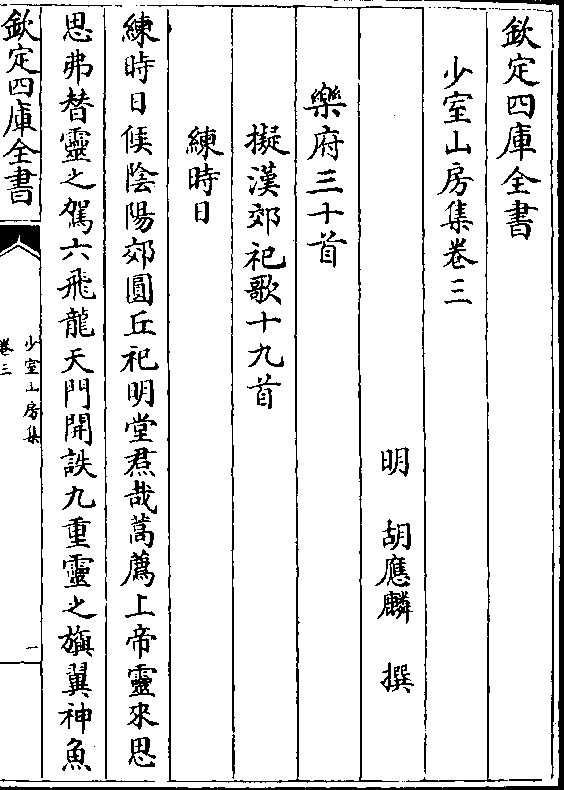 欽定四庫全書
少室山房集卷三
明　胡應麟　撰
樂府三十首
擬漢郊祀歌十九首
練時日
練時日候陰陽郊圓丘祀明堂焄哉蒿薦上帝靈來思
思弗替靈之駕六飛龍天門開詄九重靈之旟翼神魚
欽定四庫全書
少室山房集
卷三
一